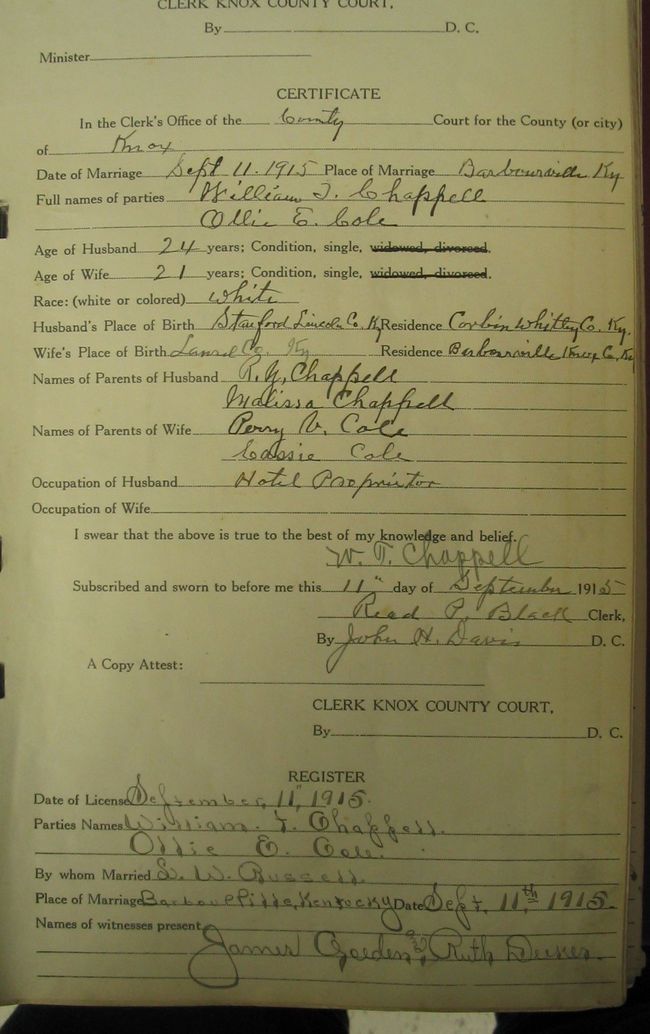 CLERK KNOX COUNTY COURT.
By D. C.
Minister
CERTIFICATE
In the Clerk's Office of the County Court for the County (or city)
of Knox
Date of Marriage Sept 11. 1915 Place of Marriage Barbourville Ky
Full names of parties William T. Chappell
Ollie E. Cole
Age of Husband 24 years; Condition, single, widowed, divorced.
Age of Wife 21 years; Condition, single, widowed, divorced.
Race: (white or colored) White
Husband's Place of Birth Stanford Lincoln Co. Ky Residence Corbin Whitley Co. Ky.
Wife's Place of Birth Laurel Co. Ky Residence Barbourville Knox Co. Ky
Names of Parents of Husband R. Y. Chappell
Malissa Chappell
Names of Parents of Wife Perry V. Cole
Cassie Cole
Occupation of Husband Hotel Proprietor
Occupation of Wife
I swear that the above is true to the best of my knowledge and belief.
W. T. Chappell
Subscribed and sworn to before me this 11" day of September 1915
Read P. Black Clerk,
By John H. Davis D. C.
A Copy Attest:
CLERK KNOX COUNTY COURT,
By D. C.
REGISTER
Date of License September, 11", 1915.
Parties Names William. T. Chappell.
Ollie E. Cole.
By whom Married S. W. Russell.
Place of Marriage Barbourville, Kentucky Date Sept. 11,th 1915.
Names of witnesses present
James and Ruth